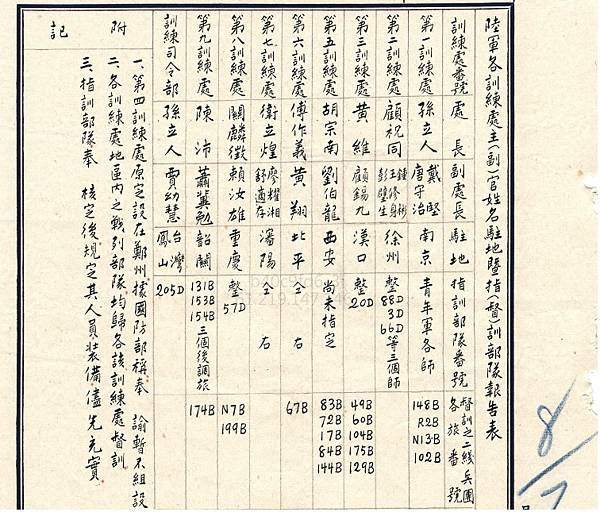 陸軍各訓練處主(副)官姓名駐地暨指(督)訓部隊報告表
訓練處番號 處長 副處長 駐地 指訓部隊番號 督訓之二綫兵團各旅番號
第一訓練處 孫立人 戴堅 唐守治 南京 青年軍各師 148B R2B N13B 102B
第二訓練處 顧祝同 鍾彬 王修身 彭璧生 徐州 整88D 3D 66D等三個師
第三訓練處 黃維 顧錫九 漢口 整20D 49B 60B 104B 175B 129B
第五訓練處 胡宗南 劉伯龍 西安 尚未指定 83B 72B 17B 84B 144B
第六訓練處 傅作義 黃翔 北平 仝右 67B
第七訓練處 衛立煌 廖耀湘 舒適存 瀋陽 仝右
第八訓練處 關麟徵 賴汝雄 重慶 整57D N7B 199B
第九訓練處 陳沛 蕭冀勉 韶關 131B 153B 154B三個後調旅 174B
訓練司令部 孫立人 賈幼慧 台灣鳳山 205D
附記
一、第四訓練處原定設在鄭州據國防部稱奉 諭暫不組設
二、各訓練處地區內之戰列部隊均歸各該訓練處督訓
三、指訓部隊奉 核定後規定其人員裝備儘先充實
8/7